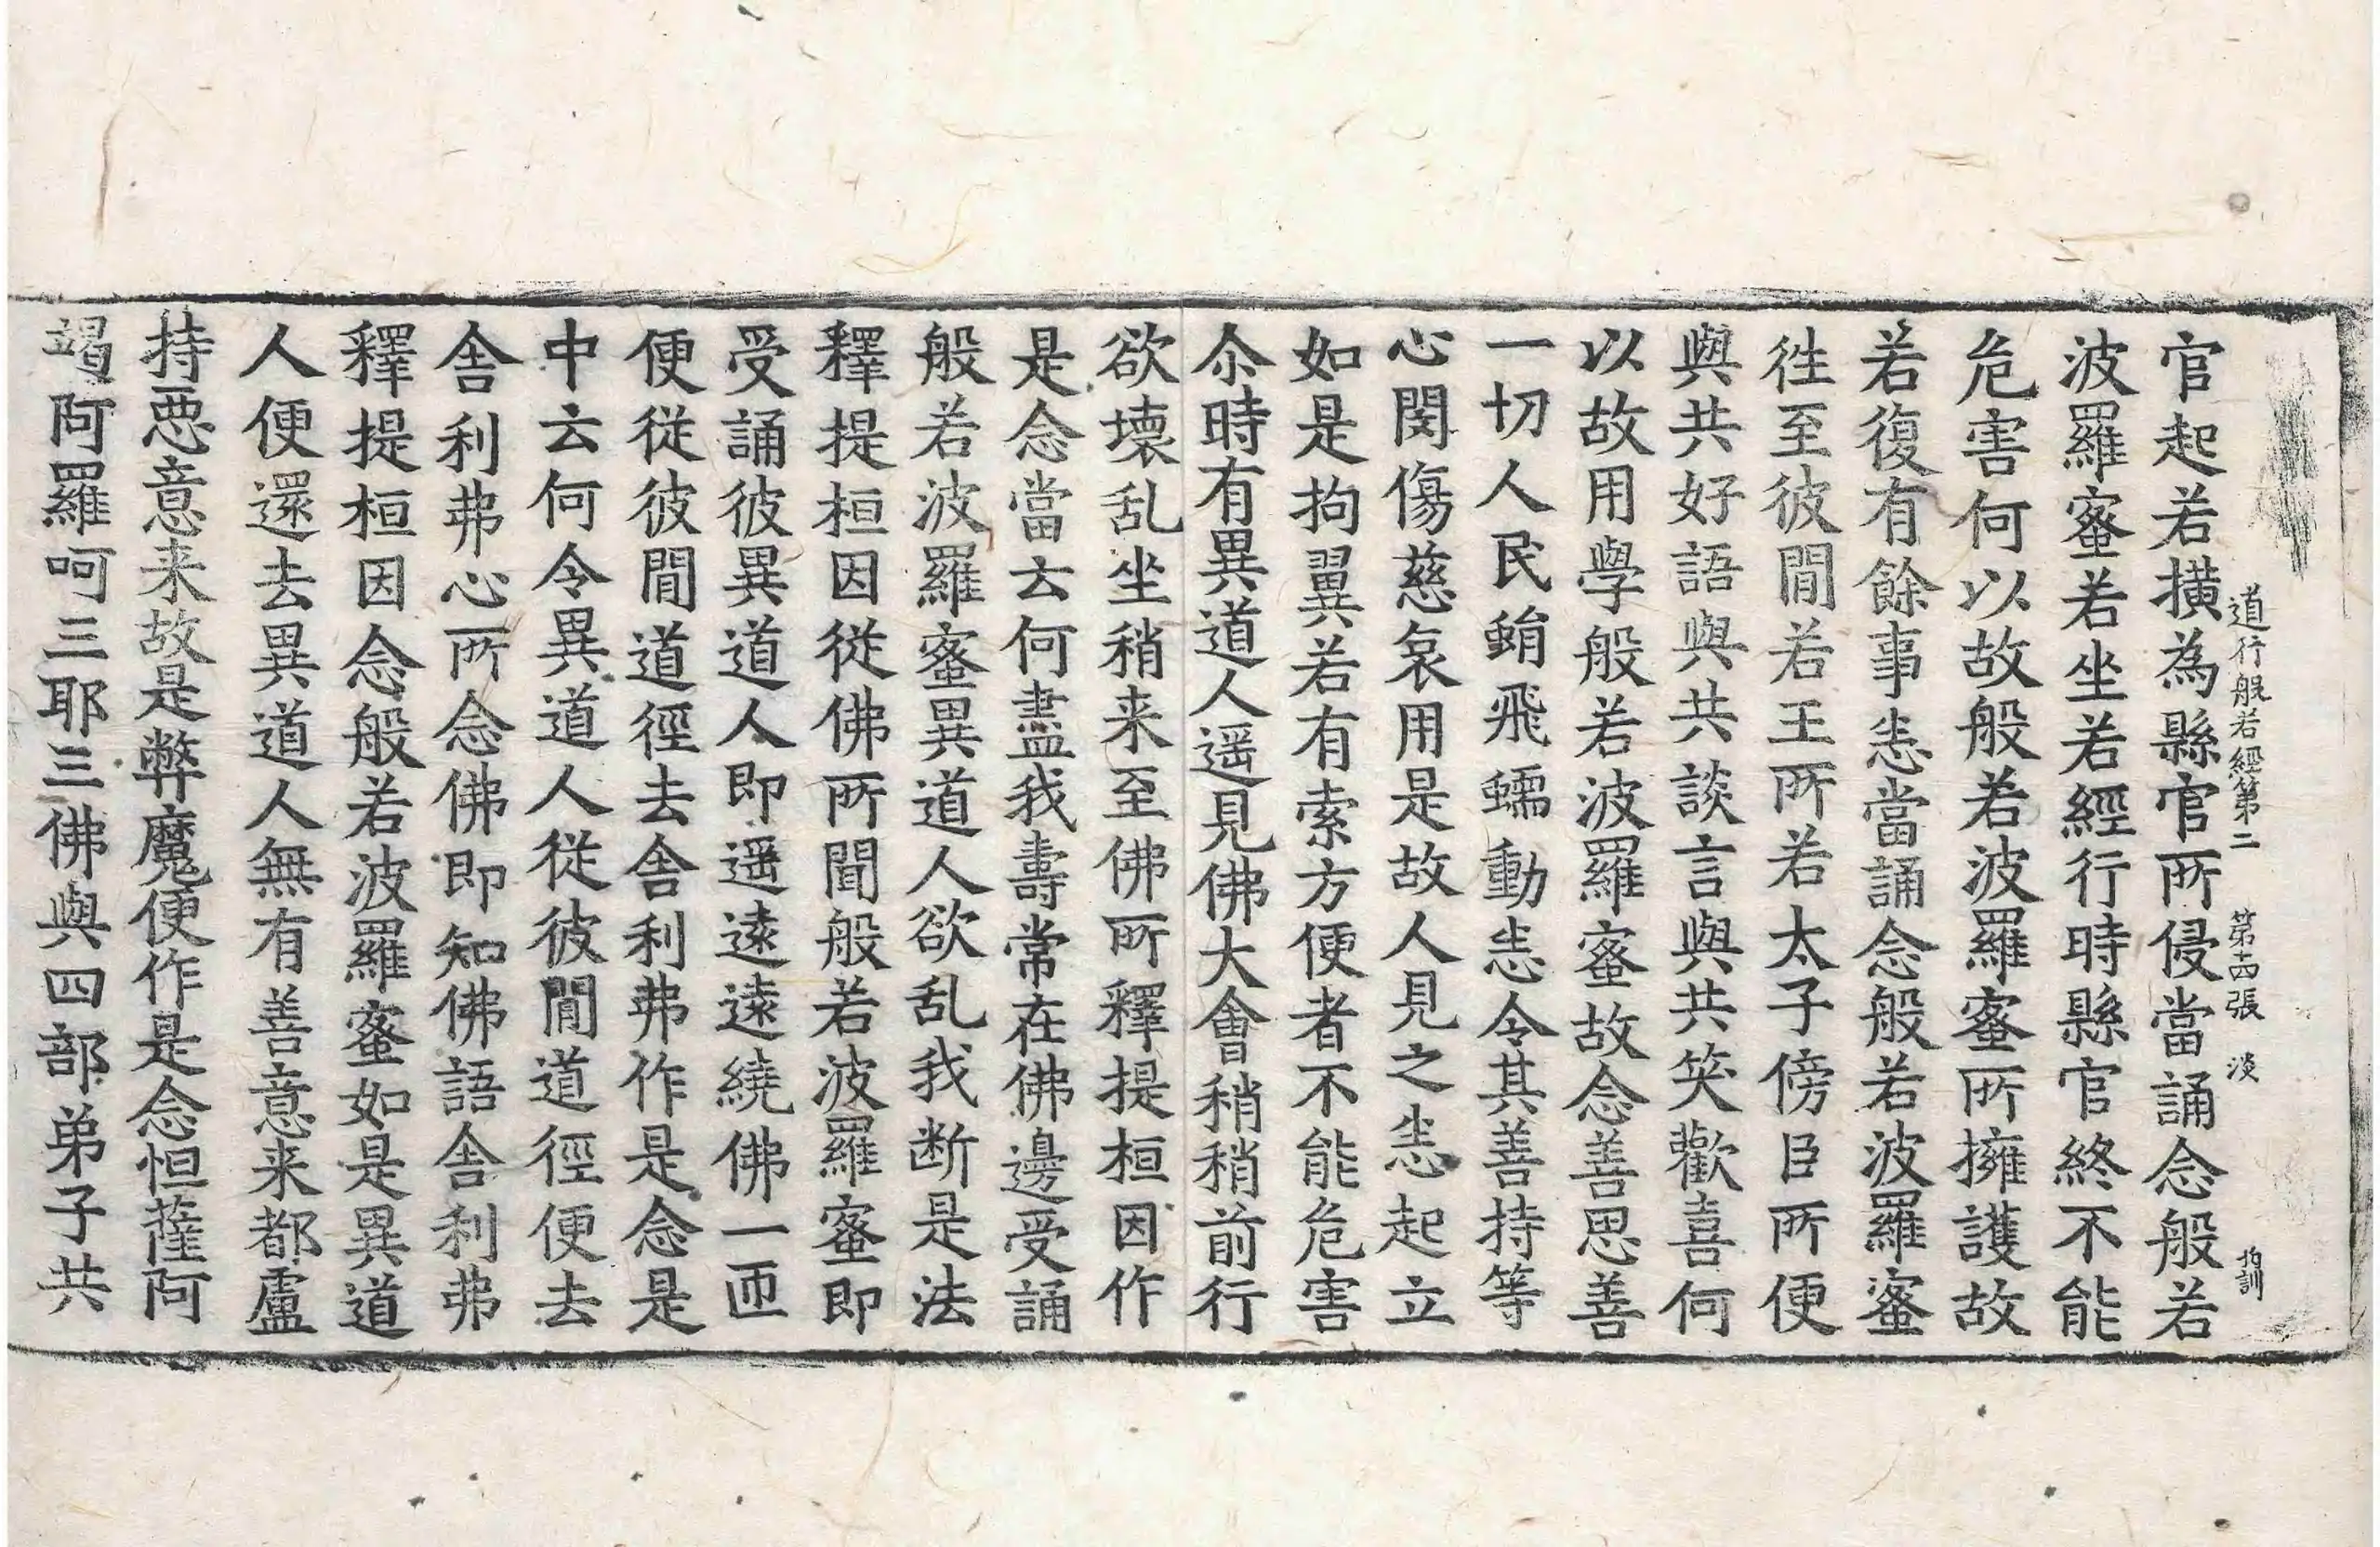 道行般若經第二　第十四張　淡
官起若橫為縣官所侵當誦念般若
波羅蜜若坐若經行時縣官終不能
危害何以故般若波羅蜜所擁護故
若復有餘事恚當誦念般若波羅蜜
徃至彼間若王所若太子傍臣所便
與共好語與共談言與共笑歡喜何
以故用學般若波羅蜜故念善思善
一切人民蜎飛蠕動恚令其善持等
心閔傷慈哀用是故人見之恚起立
如是拘翼若有索方便者不能危害
尒時有異道人遥見佛大會稍稍前行
欲壞乱坐稍来至佛所釋提桓因作
是念當云何盡我壽常在佛邊受誦
般若波羅蜜異道人欲乱我断是法
釋提桓因從佛所聞般若波羅蜜即
受誦彼異道人即遥遠遠繞佛一匝
便從彼間道徑去舍利弗作是念是
中云何令異道人從彼間道徑便去
舍利弗心所念佛即知佛語舍利弗
釋提桓因念般若波羅蜜如是異道
人便還去異道人無有善意来都盧
持惡意来故是弊魔便作是念怛薩阿
竭阿羅呵三耶三佛與四部弟子共